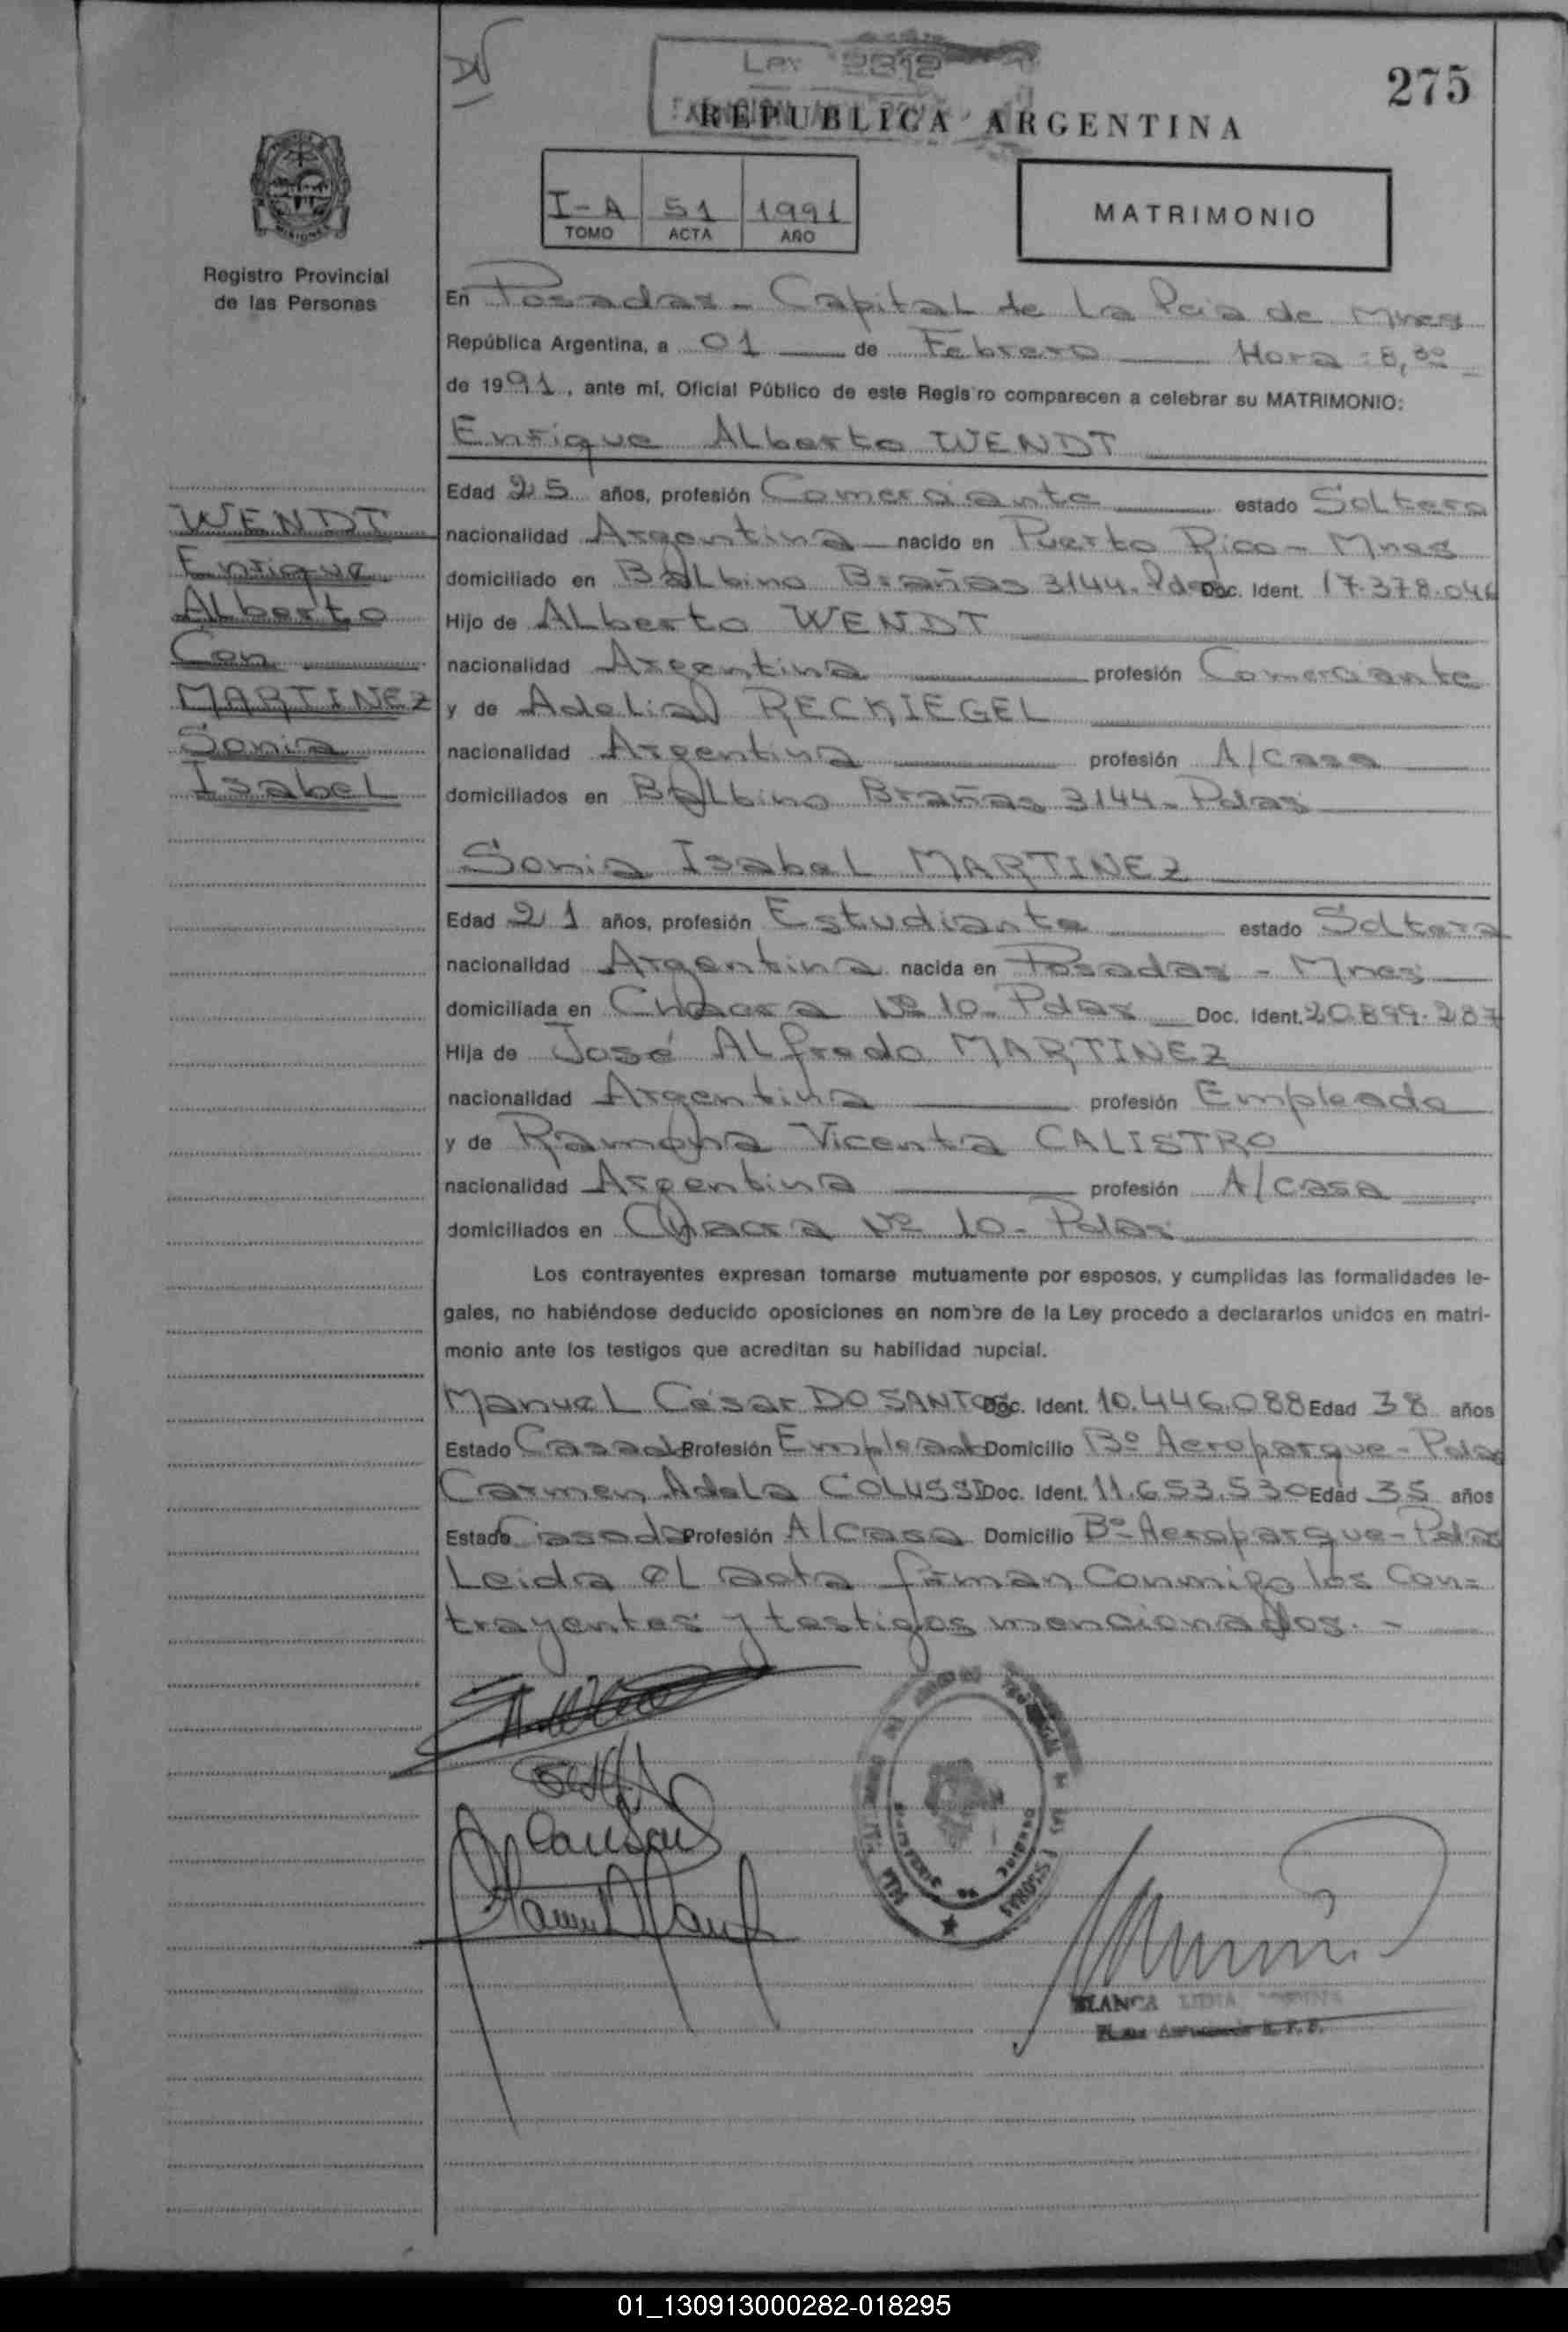 275
Ley 2312
REPUBLICA ARGENTINA
I-A 51 1991
TOMO ACTA AÑO
MATRIMONIO
MISIONES
Registro Provincial
de las Personas
En Posadas - Capital de La Pcia de Mnes
República Argentina, a 01 de Febrero Hora: 8,30
de 1991, ante mí, Oficial Público de este Registro comparecen a celebrar su MATRIMONIO:
Enrique Alberto WENDT
WENDT
Enrique
Alberto
Con
MARTINEZ
Sonia
Isabel
Edad 25 años, profesión Comerciante estado Soltero
nacionalidad Argentina nacido en Puerto Rico - Mnes
domiciliado en Balbino Brañas 3144. Pdas Doc. Ident. 17.378.046
Hijo de Alberto WENDT
nacionalidad Argentina profesión Comerciante
y de Adelia RECKIEGEL
nacionalidad Argentina profesión A/casa
domiciliados en Balbino Brañas 3144 - Pdas
Sonia Isabel MARTINEZ
Edad 21 años, profesión Estudiante estado Soltera
nacionalidad Argentina nacida en Posadas - Mnes
domiciliada en Chacra Nº 10 - Pdas Doc. Ident. 20.899.287
Hija de José Alfredo MARTINEZ
nacionalidad Argentina profesión Empleado
y de Ramona Vicenta CALISTRO
nacionalidad Argentina profesión A/casa
domiciliados en Chacra Nº 10 - Pdas
Los contrayentes expresan tomarse mutuamente por esposos, y cumplidas las formalidades le-
gales, no habiéndose deducido oposiciones en nombre de la Ley procedo a declararlos unidos en matri-
monio ante los testigos que acreditan su habilidad nupcial.
Manuel César DO SANTOS Doc. Ident. 10.446.088 Edad 38 años
Estado Casado Profesión Empleado Domicilio Bº Aeroparque - Pdas
Carmen Adela COLUSSI Doc. Ident. 11.653.530 Edad 35 años
Estado Casada Profesión A/Casa Domicilio Bº Aeroparque - Pdas
Leida el acta firman Conmigo los Con=
trayentes y testigos mencionados. -
BLANCA LIDIA
01_130913000282-018295